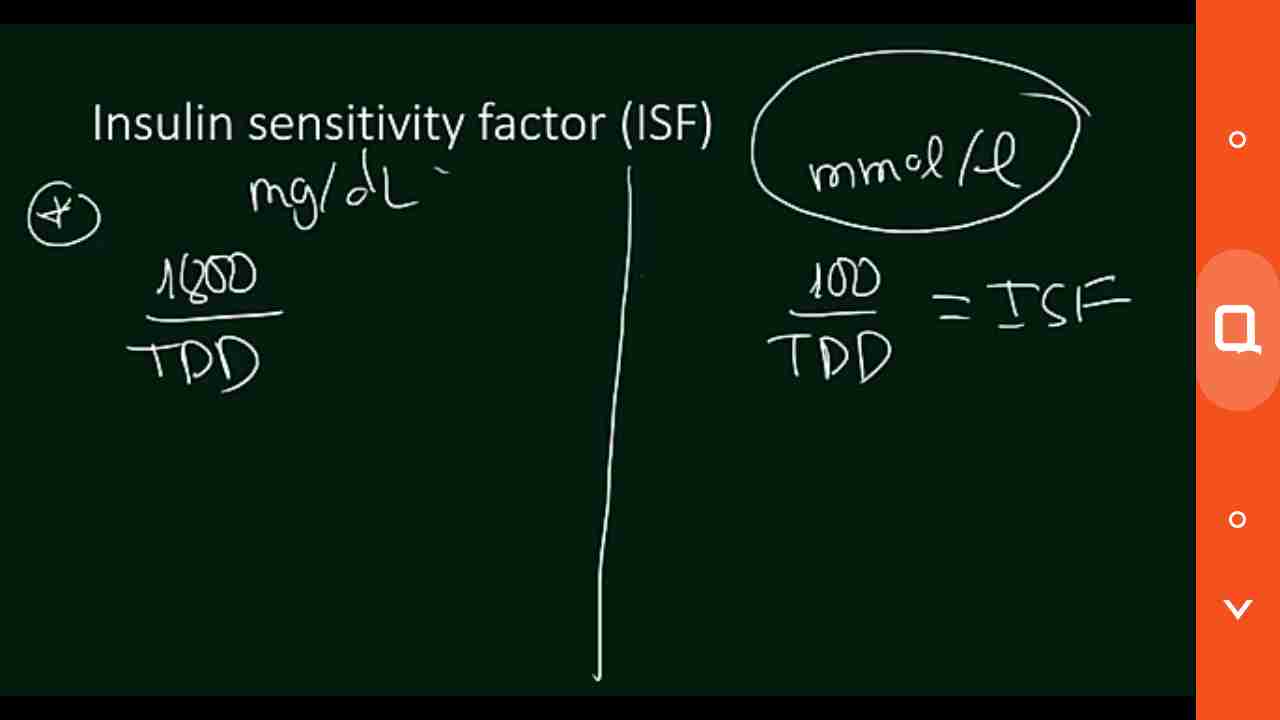 Insulin sensitivity factor (ISF)
mg/dL
1800
TDD
mmol/l
100
TDD
= ISF